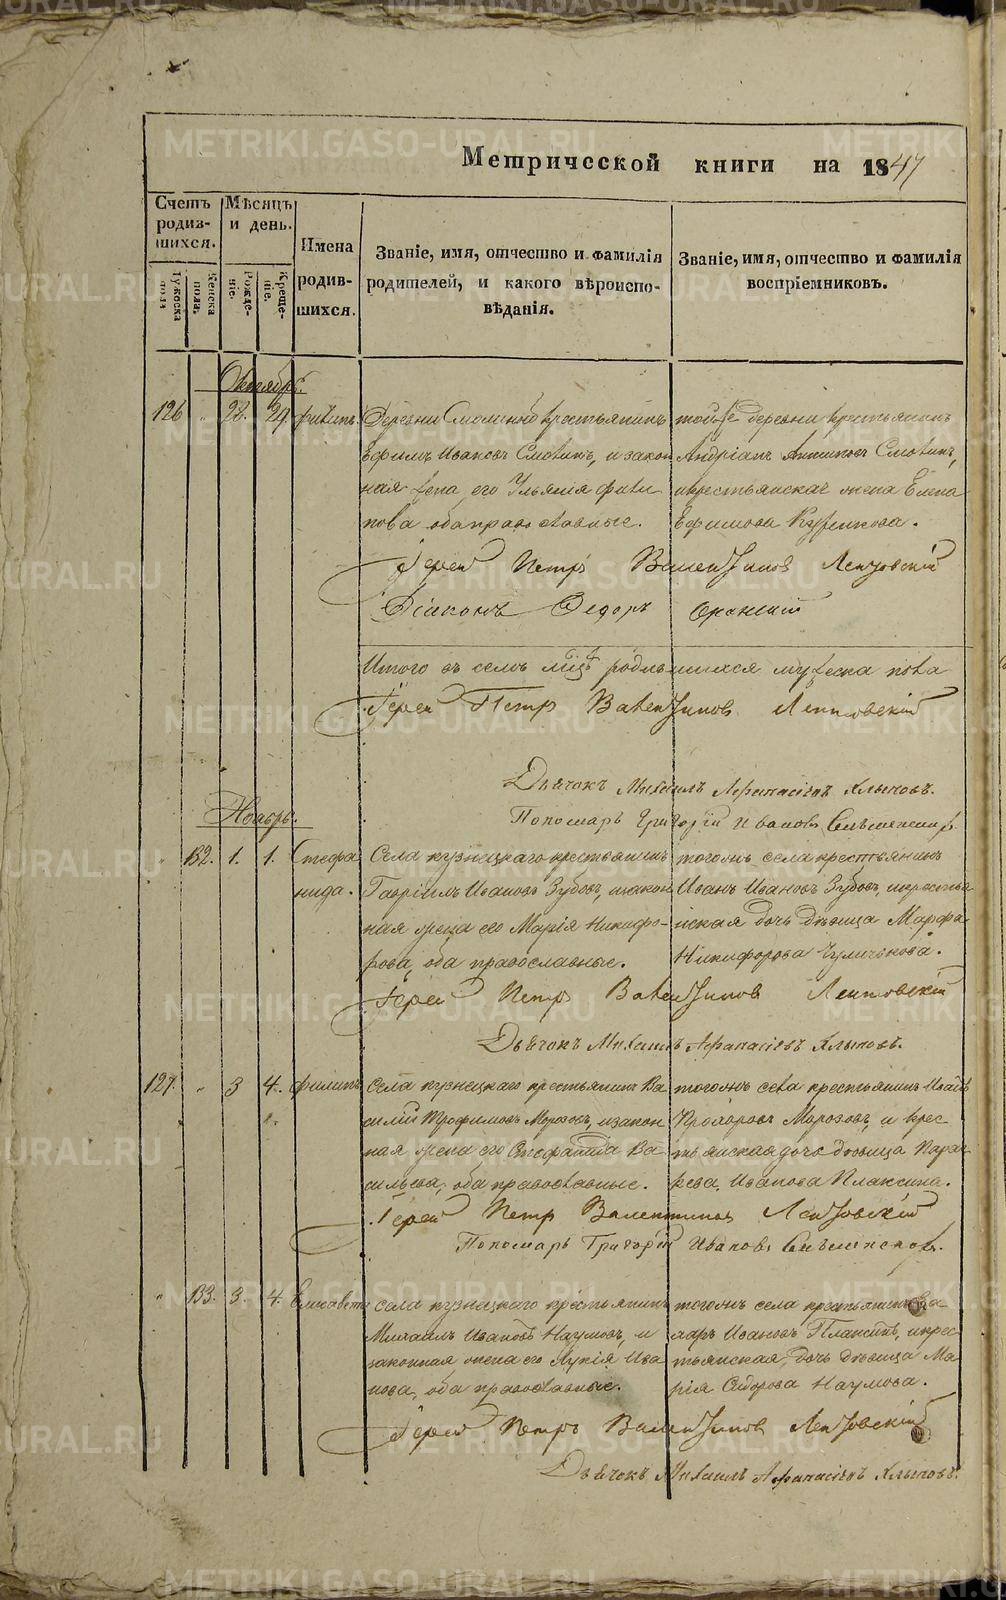 Метрической книги на 1847
Счетъ родив-шихся.
Мѣсяцъ и день.
Имена родив-шихся.
Званіе, имя, отчество и фамилія родителей, и какого вѣроиспо-вѣданія.
Званіе, имя, отчество и фамилія воспріемниковъ.
Мужеска пола
Женска пола.
Рожде-ніе.
Креще-ніе.
Октябрь.
126 " 28. 29. Филипъ.
Деревни крестьянинъ
Ефимъ Ивановъ Смовинъ, и закон
ная жена его Ульянія Фили
пова оба православные.
тойже деревни крестьянинъ
Андріанъ Антиповъ Смовинъ,
икрестьянская жена Елена
Ефимова
Іерей Петръ Валентиновъ Лентовскій
Діаконъ Федоръ
Итого въ семъ мцѣ родившихся мужеска пола
Іерей Петръ Валентиновъ Лентовскій
Дьячокъ Михаилъ Афанасіевъ Хлыновъ.
Пономарь Григорій Ивановъ
Ноябрь.
" 132. 1. 1. Стефа
нида.
Села кузнецкаго крестьянинъ
Гавріилъ Ивановъ Зубовъ, изакон
ная жена его Марія Никифо-
рова, оба православные.
тогожъ села крестьянинъ
Иванъ Ивановъ Зубовъ, икрестья
нская дочь дѣвица Марфа
Никифорова
Іерей Петръ Валентиновъ Лентовскій
Дьячокъ Михаилъ Афанасіевъ Хлыновъ.
127. " 3 4. Филипъ
Села кузнецкаго крестьянинъ Ва
силій Трофимовъ Морозовъ, изакон
ная жена его Стефанида Ва
сильева, оба православные.
тогожъ села крестьянинъ Иванъ
Прохоровъ Морозовъ, и крес
тьянская дочь дѣвица Парас
кева Иванова Плаксина.
Іерей Петръ Валентиновъ Лентовскій
Пономарь Григорій Ивановъ
" 133. 3. 4. Елисавета
села кузнецкаго крестьянинъ
Михаилъ Ивановъ Наумовъ, и
законная жена его Лукія Ива
нова, оба православные.
тогожъ села крестьянинъ
Ивановъ Плаксинъ, икрес
тьянская дочь дѣвица Ма
рія Сидорова Наумова.
Іерей Петръ Валентиновъ Лентовскій
Дьячокъ Михаилъ Афанасіевъ Хлыновъ.
METRIKI.GASO-URAL.RU